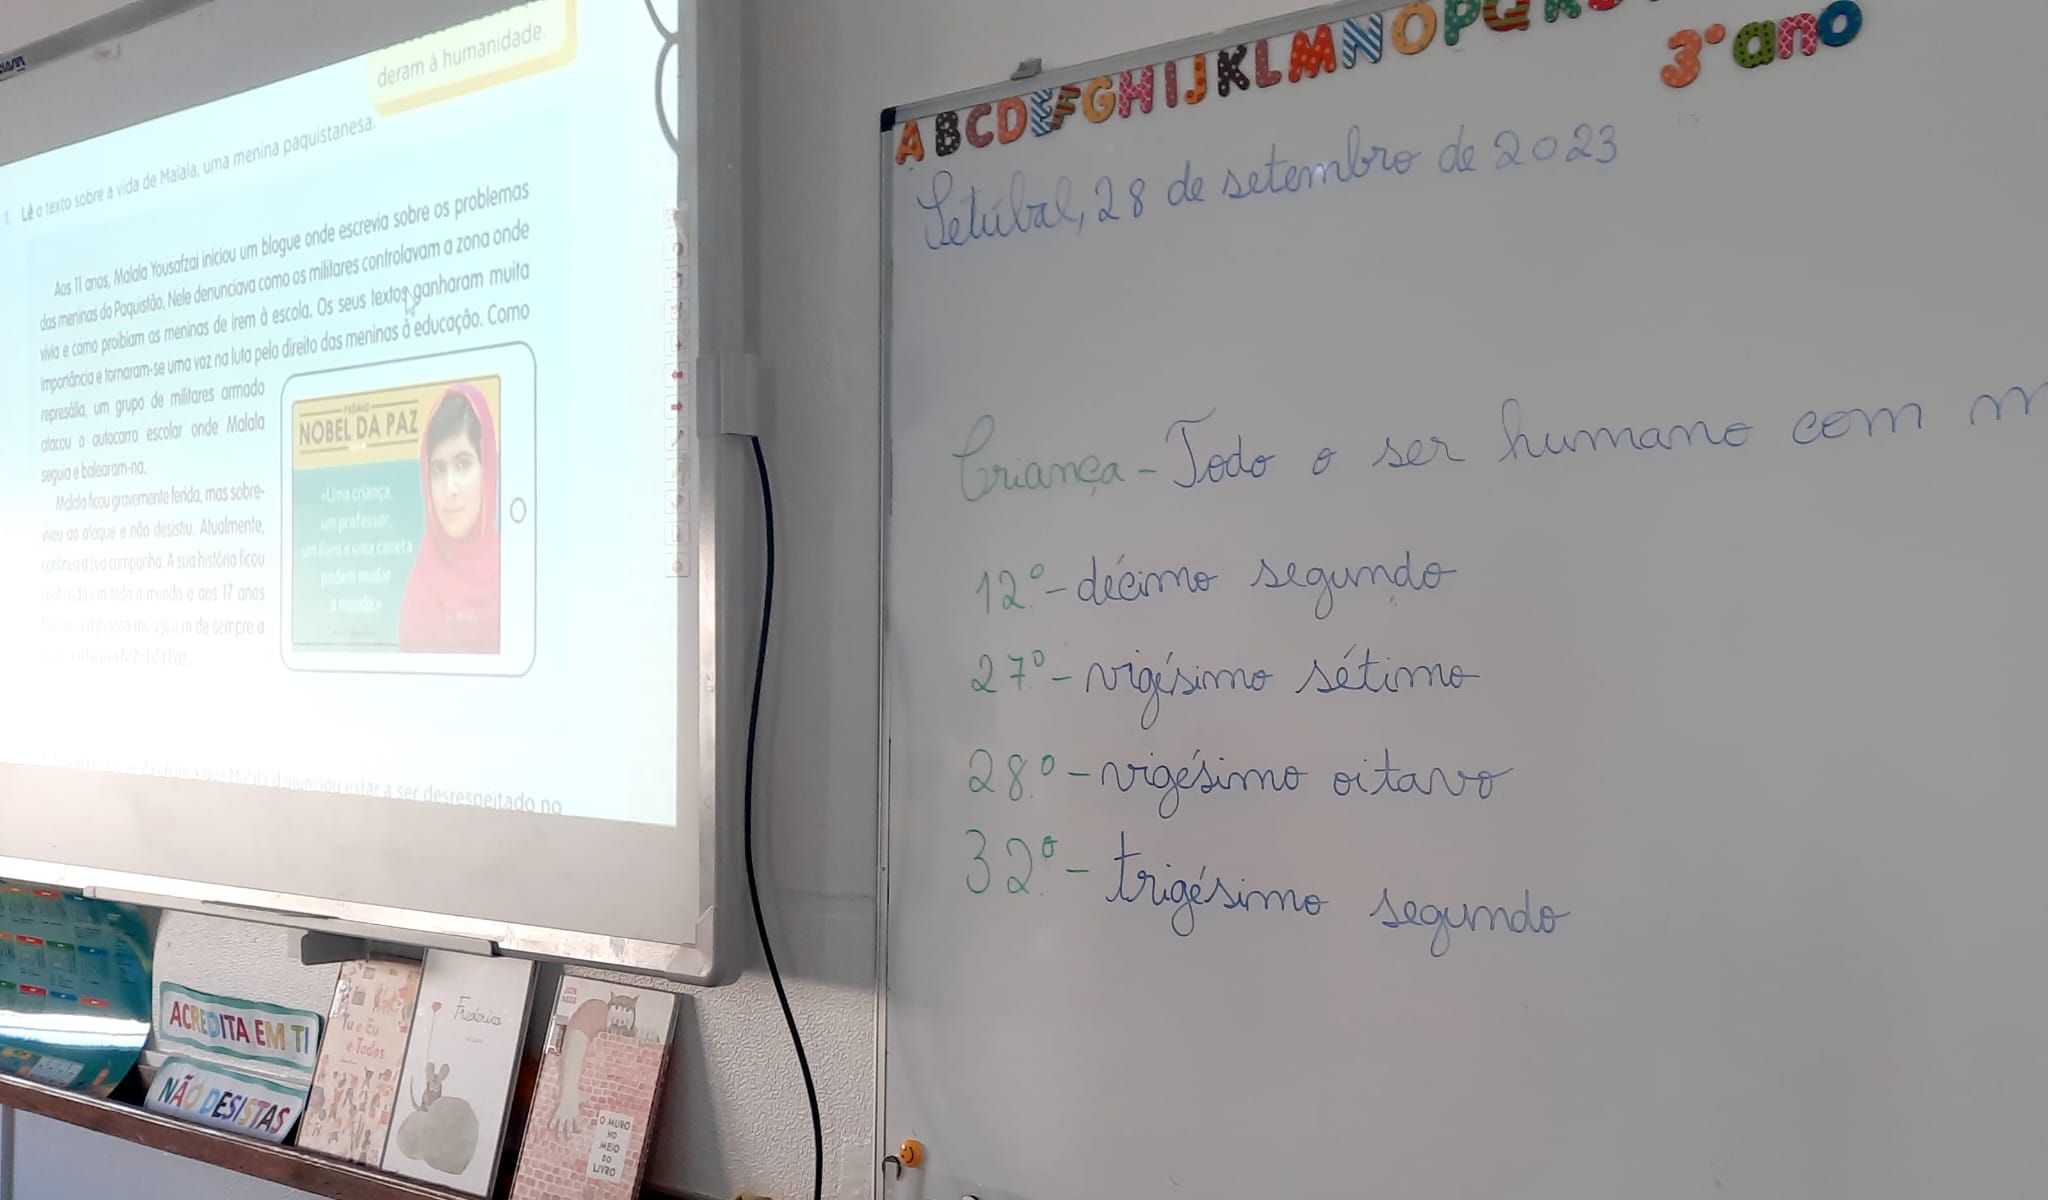 deram à humanidade.
1. Lê o texto sobre a vida de Malala, uma menina paquistanesa.
Aos 11 anos, Malala Yousafzai iniciou um blogue onde escrevia sobre os problemas
das meninas do Paquistão. Nele denunciava como os militares controlavam a zona onde
vivia e como proibiam as meninas de irem à escola. Os seus textos ganharam muita
importância e tornaram-se uma voz na luta pelo direito das meninas à educação. Como
represália, um grupo de militares armado
atacou o autocarro escolar onde Malala
seguia e balearam-na.
Malala ficou gravemente ferida, mas sobre-
viveu ao ataque e não desistiu. Atualmente,
continua a sua campanha. A sua história ficou
em todo o mundo e aos 17 anos
pessoa mais jovem de sempre a
Nobel da Paz
PRÉMIO
NOBEL DA PAZ
«Uma criança,
um professor,
um livro e uma caneta
podem mudar
o mundo.»
que Malala denunciou estar a ser desrespeitado no
ACREDITA EM TI
NÃO DESISTAS
Tu e Eu
e Todos
Frederico
JON
AGEE
O MURO
NO
MEIO
DO
LIVRO
A B C D E F G H I J K L M N O P Q R
3º ano
Setúbal, 28 de setembro de 2023
Criança - Todo o ser humano com m
12.º - décimo segundo
27.º - vigésimo sétimo
28.º - vigésimo oitavo
32.º - trigésimo segundo